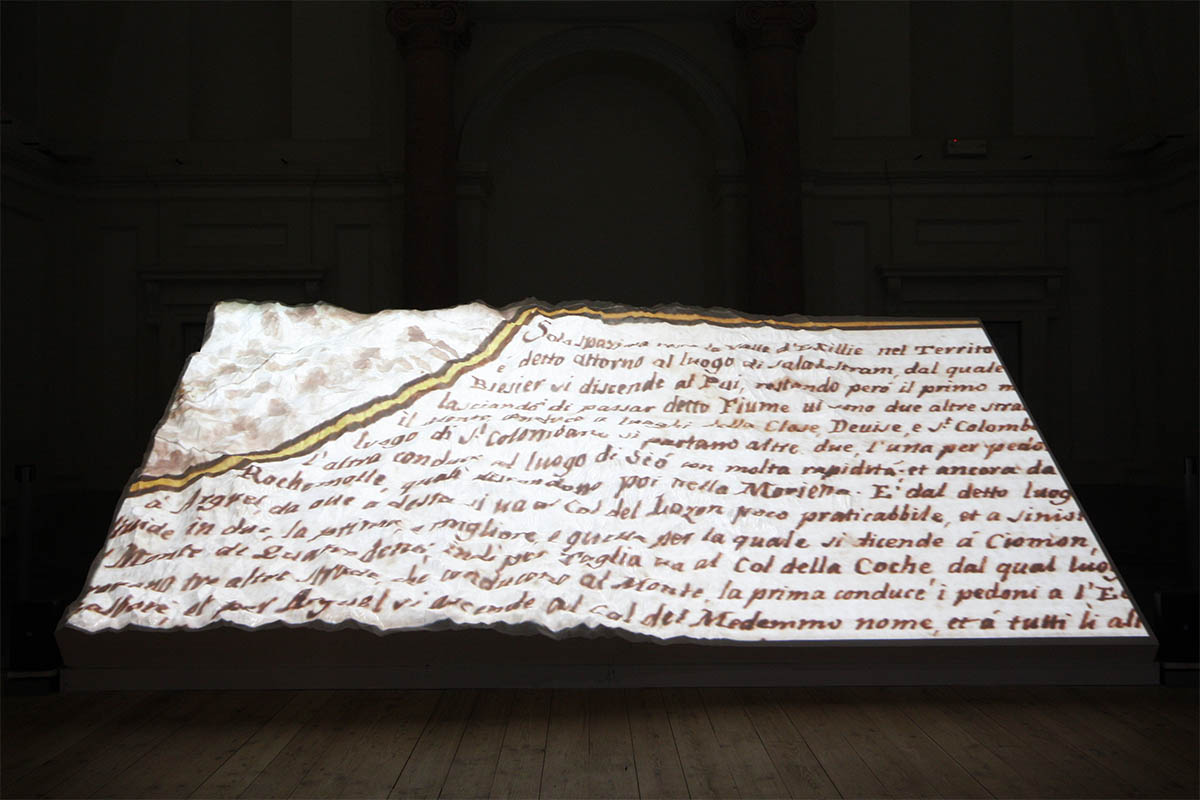 Sola passina la valle d'Exillie nel Territo
e detto attorno al luogo di salabestram, dal quale
Biesier vi discende al Pui, restando però il primo m
lasciando di passar detto Fiume vi sono due altre stra
il conduce a luoghi della Clase Deuise, e st. Colomb
luogo di St. Colombano si partano altre due, l'una per pedo
l'altra conduce al luogo di Seó con molta rapidità, et ancora da
Rochemolle, quali descendono poi nella Moriena. E' dal detto luog
à Arguel da oue a dessa si ua al Col del Lozon poco praticabbile, et a sinis
diuide in due, la prima e migliore, e questa per la quale si dicende á Ciomon,
Monte di indi per Foglia ua al Col della Coche dal qual luog
tre altre strade che conducono al Monte, la prima conduce' i pedoni a l'E
et per Arguel vi ascende al Col del Medemmo nome, et á tutti li alt